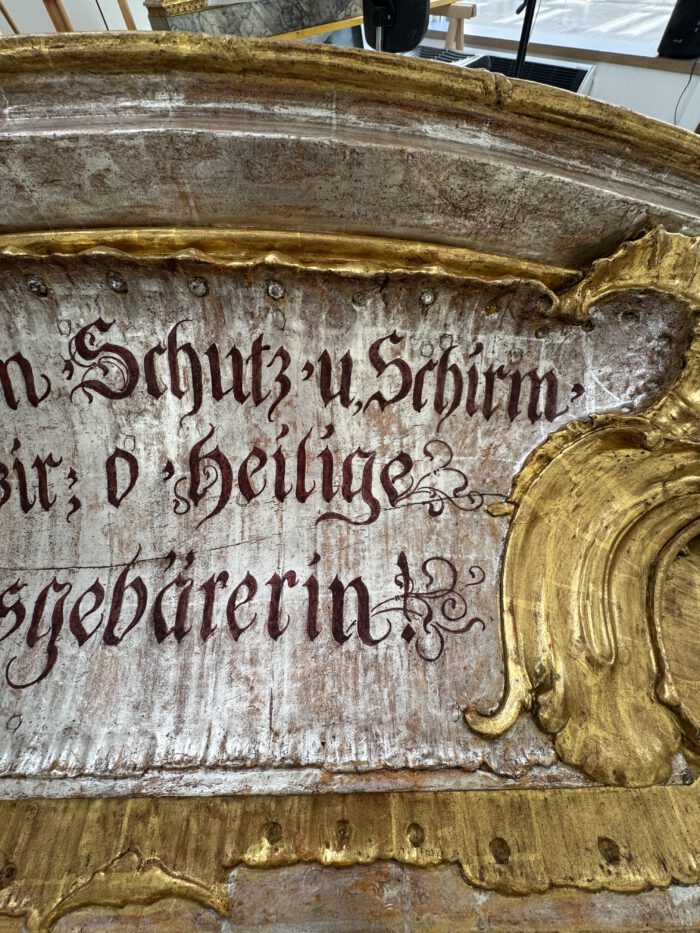 m Schutz u, Schirm
wir; o heilige
sgebärerin!